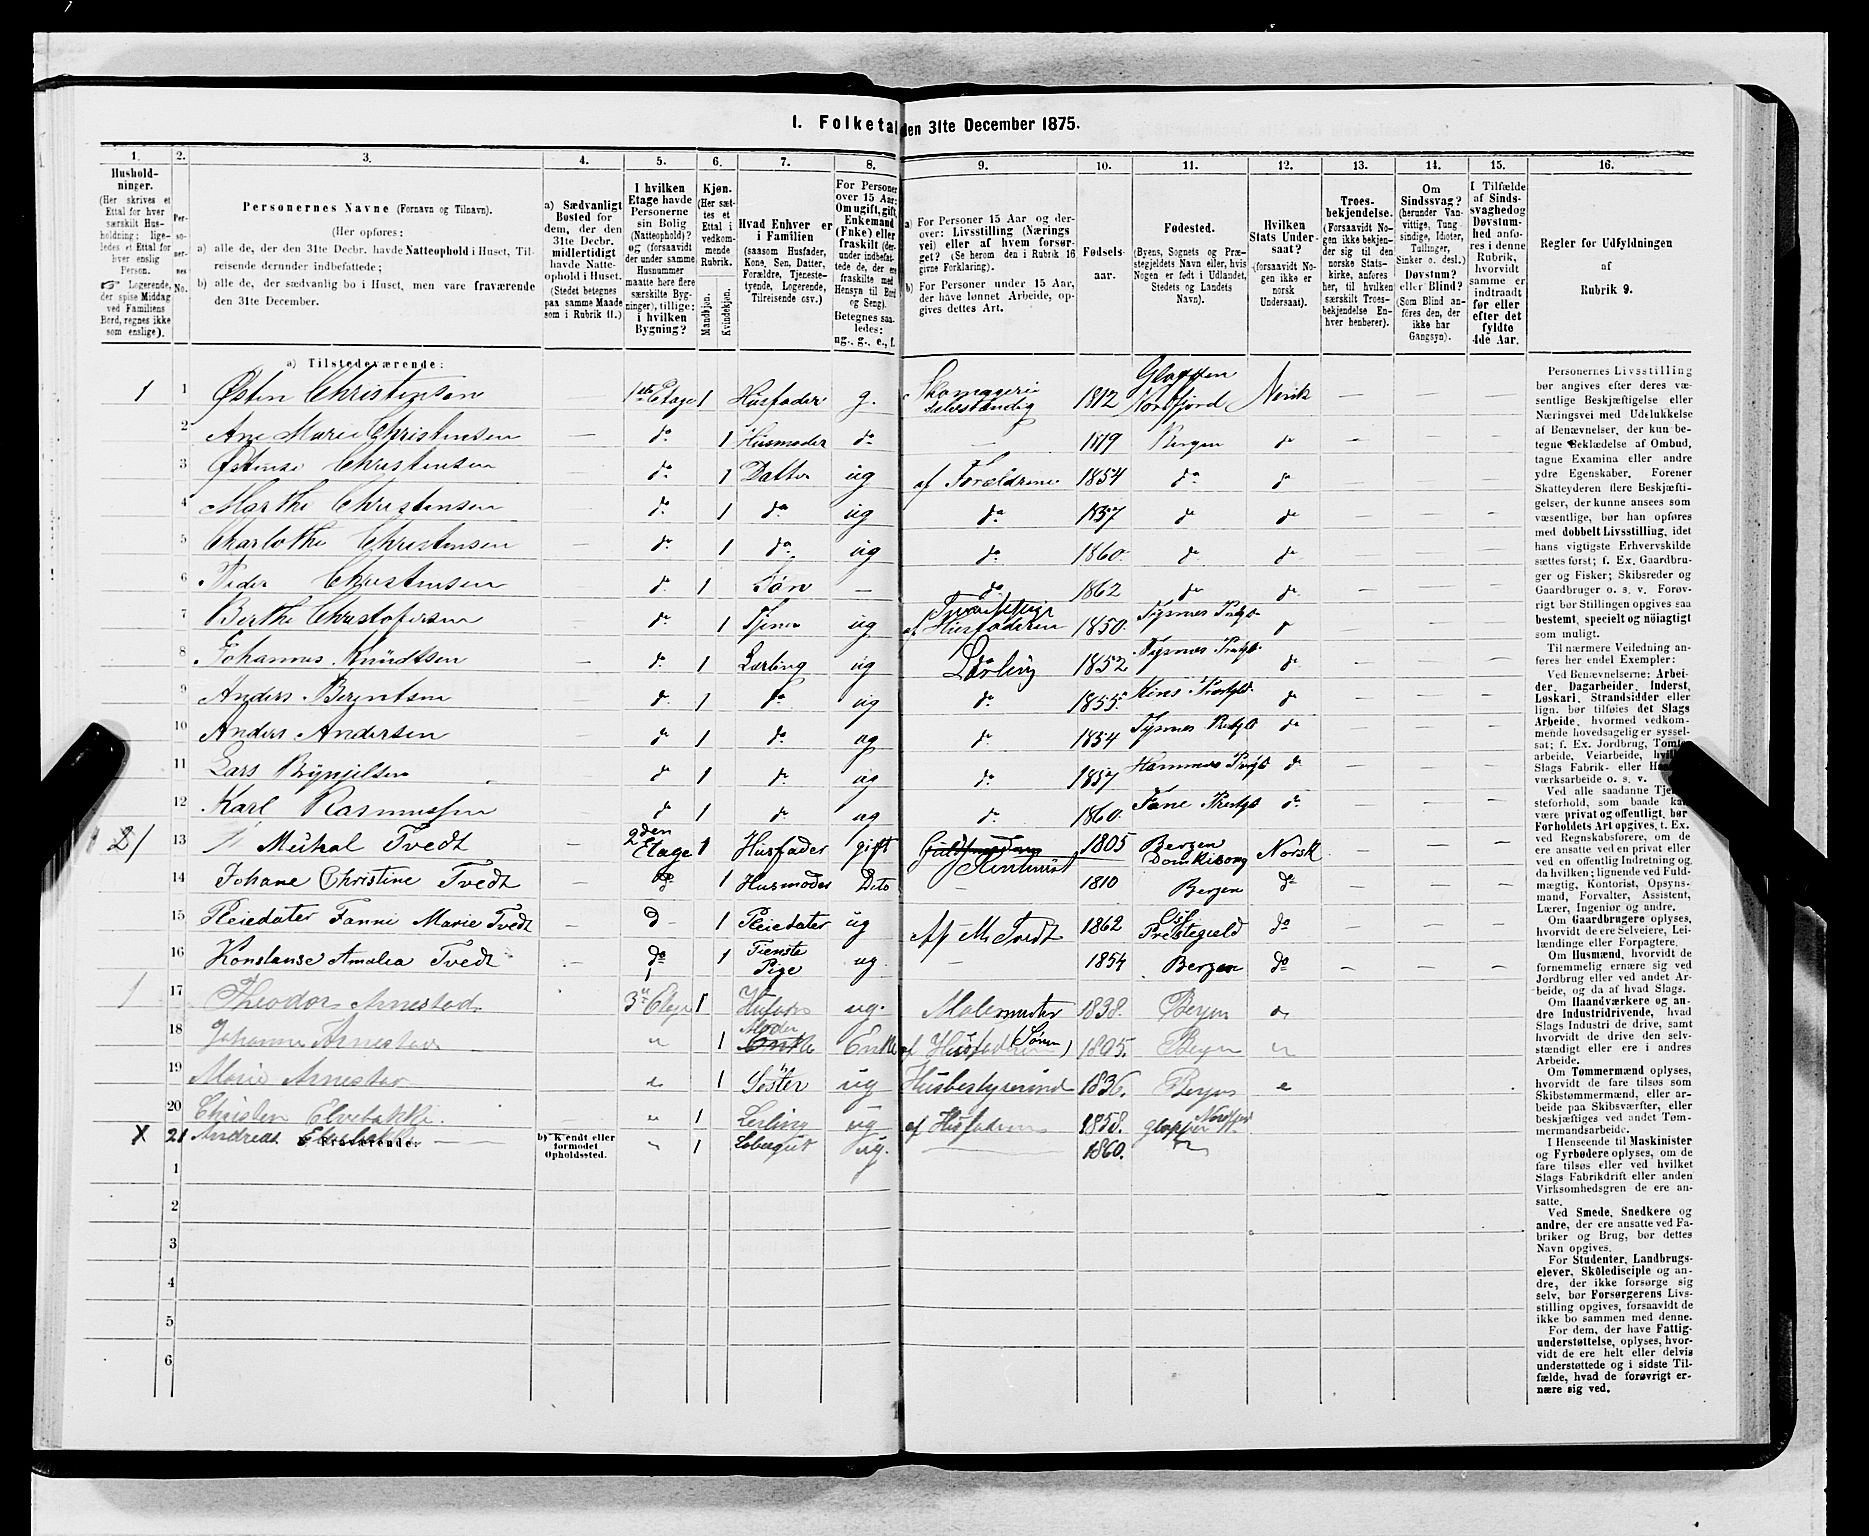 I. Folketal den 31te December 1875.
1. 2. 3. 4. 5. 6. 7. 8. 9. 10. 11. 12. 13. 14. 15. 16.
Hushold-
ninger.
(Her skrives et
Ettal for hver
særskilt Hus-
holdning; lige-
ledes et Ettal for
hver enslig
Person.
☞ Logerende,
der spise Middag
ved Familiens
Bord, regnes ikke
som enslige).
Per-
so-
ner-
nes
No.
Personernes Navne (Fornavn og Tilnavn).
(Her opføres:
a) alle de, der den 31te Decbr. havde Natteophold i Huset, Til-
reisende derunder indbefattede;
b) alle de, der sædvanlig bo i Huset, men vare fraværende
den 31te December.
a) Sædvanligt
Bosted for
dem, der den
31te Decbr.
midlertidigt
havde Natte-
ophold i Huset.
(Stedet betegnes
paa samme Maade
som i Rubrik 11.)
I hvilken
Etage havde
Personerne
sin Bolig
(Natteophold)?
og (forsaavidt
der under samme
Husnummer
maatte høre flere
særskilte Byg-
ninger), tillige:
i hvilken
Bygning?
Kjøn.
(Her sæt-
tes et
Ettal i
vedkom-
mende
Rubrik.
Mandkjøn.
Kvindekjøn.
Hvad Enhver er
i Familien
(saasom Husfader,
Kone, Søn, Datter,
Forældre, Tjeneste-
tyende, Logerende,
Tilreisende osv.)
For Personer
over 15 Aar:
Om ugift, gift,
Enkemand
(Enke) eller
fraskilt (der-
under indbefat-
tede de, der ere
fraskilte med
Hensyn til Bord
og Seng).
Betegnes saa-
ledes:
ug., g., e., f.
a) For Personer 15 Aar og der-
over: Livsstilling (Nærings
vei) eller af hvem forsør-
get? (Se herom den i Rubrik 16
givne Forklaring).
b) For Personer under 15 Aar,
der have lønnet Arbeide, op-
gives dettes Art.
Fødsels-
aar.
Fødested.
(Byens, Sognets og Præ-
stegjeldets Navn eller, hvis
Nogen er født i Udlandet,
Stedets og Landets
Navn).
Hvilken
Stats Under-
saat?
(forsaavidt No-
gen ikke er
norsk
Undersaat).
Troes-
bekjendelse.
(Forsaavidt No-
gen ikke bekjen-
der sig til den
norske Stats-
kirke, anføres
her, til hvilken
særskilt Troes-
bekjendelse En-
hver henhører).
Om
Sindssvag?
(herunder Van-
vittige, Tung-
sindige, Idioter,
Tullinger,
Sinker o. desl.)
Døvstum?
eller Blind?
(Som Blind an-
føres den, der
ikke har
Gangsyn).
I Tilfælde
af Sinds-
svaghed og
Døvstum-
hed anfø-
res i denne
Rubrik,
hvorvidt
samme er
indtraadt
før eller
efter det
fyldte
4de Aar.
Regler for Udfyldningen
af
Rubrik 9.
a) Tilstedeværende:
1 1 Østen Christensen 1ste Etage 1 Husfader g. Skomageri selvstændig 1812 Gloppen Nordfjord Norsk
2 Ane Marie Christensen do 1 Husmoder do 1819 Bergen do
3 Østense Christensen do 1 Datter ug af Forældrene 1854 do do
4 Marthe Christensen do 1 do ug do 1857 do do
5 Charlothe Christensen do 1 do ug do 1860. do do
6 Peder Christensen do 1 Søn do 1862 do do
7 Berthe Christofersen do 1 Tjener ug af Husfaderen 1850. Tysnes
8 Johannes Knudtsen do 1 Lærling ug Lærling 1852 Tysnes do
9 Anders Berentsen do 1 do ug do 1855 do
10 Anders Andersen do 1 do ug do 1854 Tysnes do
11 Lars Brynjelsen do 1 do ug do 1857 Hammer do
12 Karl Rasmussen do 1 do ug do 1860. Fane do
2 13 Mikal Tvedt 2den Etage 1 Husfader gift 1805 Bergen Domkisogn Norsk
14 Johane Christine Tvedt do 1 Husmoder Dito 1810 Bergen do
15 Pleiedater Fanni Marie Tvedt do 1 Pleiedater ug Af M Tvedt 1862 Prestegield do
16 Konstanse Amalia Tvedt do 1 Tieneste Pige ug 1854 Bergen do
1 17 Theodor Arnestad 3 Etage 1 Husfader ug. Malermester 1838. Bergen
18 Johanne Arnestad 1 Moder Enke Enke af Husfaderen (Sønnen) 1805. Bergen
19 Marie Arnestad 1 Söster ug Husbestyrerinde 1836. Bergen
20 Christen Elvebakke. 1 Lerling ug af Husfaderen 1858. Glopper Nordfjord
X 21 Andreas Elvebakke 1 Løbegut ug. 1860.
b) Fraværende:
b) Kjendt eller
formodet
Opholdssted.
1
2
3
4
5
6
Personernes Livsstilling
bør angives efter deres væ-
sentlige Beskjæftigelse eller
Næringsvei med Udelukkelse
af Benævnelser, der kun be-
tegne Beklædelse af Ombud,
tagne Examina eller andre
ydre Egenskaber. Forener
Skatteyderen flere Beskjæfti-
gelser, der kunne ansees som
væsentlige, bør han opføres
med dobbelt Livsstilling, idet
hans vigtigste Erhvervskilde
sættes først; f. Ex. Gaardbru-
ger og Fisker; Skibsreder og
Gaardbruger o. s. v. Forøv-
rigt bør Stillingen opgives saa
bestemt, specielt og nøiagtigt
som muligt.
Til nærmere Veiledning an-
føres her endel Exempler:
Ved Benævnelserne: Arbei-
der, Dagarbeider, Inderst,
Løskarl, Strandsidder eller
lign. bør tilføies det Slags
Arbeide, hvormed vedkom-
mende hovedsagelig er syssel-
sat; f. Ex. Jordbrug, Tomte-
arbeide, Veiarbeide, hvilket
Slags Fabrik- eller Haand-
værksarbeide o. s. v.
Ved alle saadanne Tjene-
steforhold, som baade kan
være privat og offentligt, bør
Forholdets Art opgives, f. Ex.
ved Regnskabsførere, om de
ere ansatte ved en privat eller
ved en offentlig Indretning og
da hvilken; lignende ved Fuld-
mægtig, Kontorist, Opsyns-
mand, Forvalter, Assistent,
Lærer, Ingeniør og andre.
Om Gaardbrugere oplyses,
hvorvidt de ere Selveiere, Lei-
lændinge eller Forpagtere.
Om Husmænd, hvorvidt de
fornemmelig ernære sig ved
Jordbrug eller ved andet Ar-
beide, og da af hvad Slags.
Om Haandværkere og an-
dre Industridrivende, hvad
Slags Industri de drive, samt
hvorvidt de drive den selv-
stændigt eller ere i andres
Arbeide.
Om Tømmermænd oplyses,
hvorvidt de fare tilsøs som
Skibstømmermænd, eller ar-
beide paa Skibsværfter, eller
beskjæftiges ved andet Tøm-
mermandsarbeide.
I Henseende til Maskinister
og Fyrbødere oplyses, om de
fare tilsøs eller ved hvilket
Slags Fabrikdrift eller anden
Virksomhedsgren de ere an-
satte.
Ved Smede, Snedkere og
andre, der ere ansatte ved Fa-
briker og Brug, bør dettes
Navn opgives.
For Studenter, Landbrugs-
elever, Skoledisciple og an-
dre, der ikke forsørge sig
selv, bør Forsørgerens Livs-
stilling opgives, forsaavidt de
ikke bo sammen med denne.
For dem, der have Fattig-
understøttelse, oplyses, hvor-
vidt de ere helt eller delvis
understøttede og i sidste Til-
fælde, hvad de forøvrigt er-
nære sig ved.